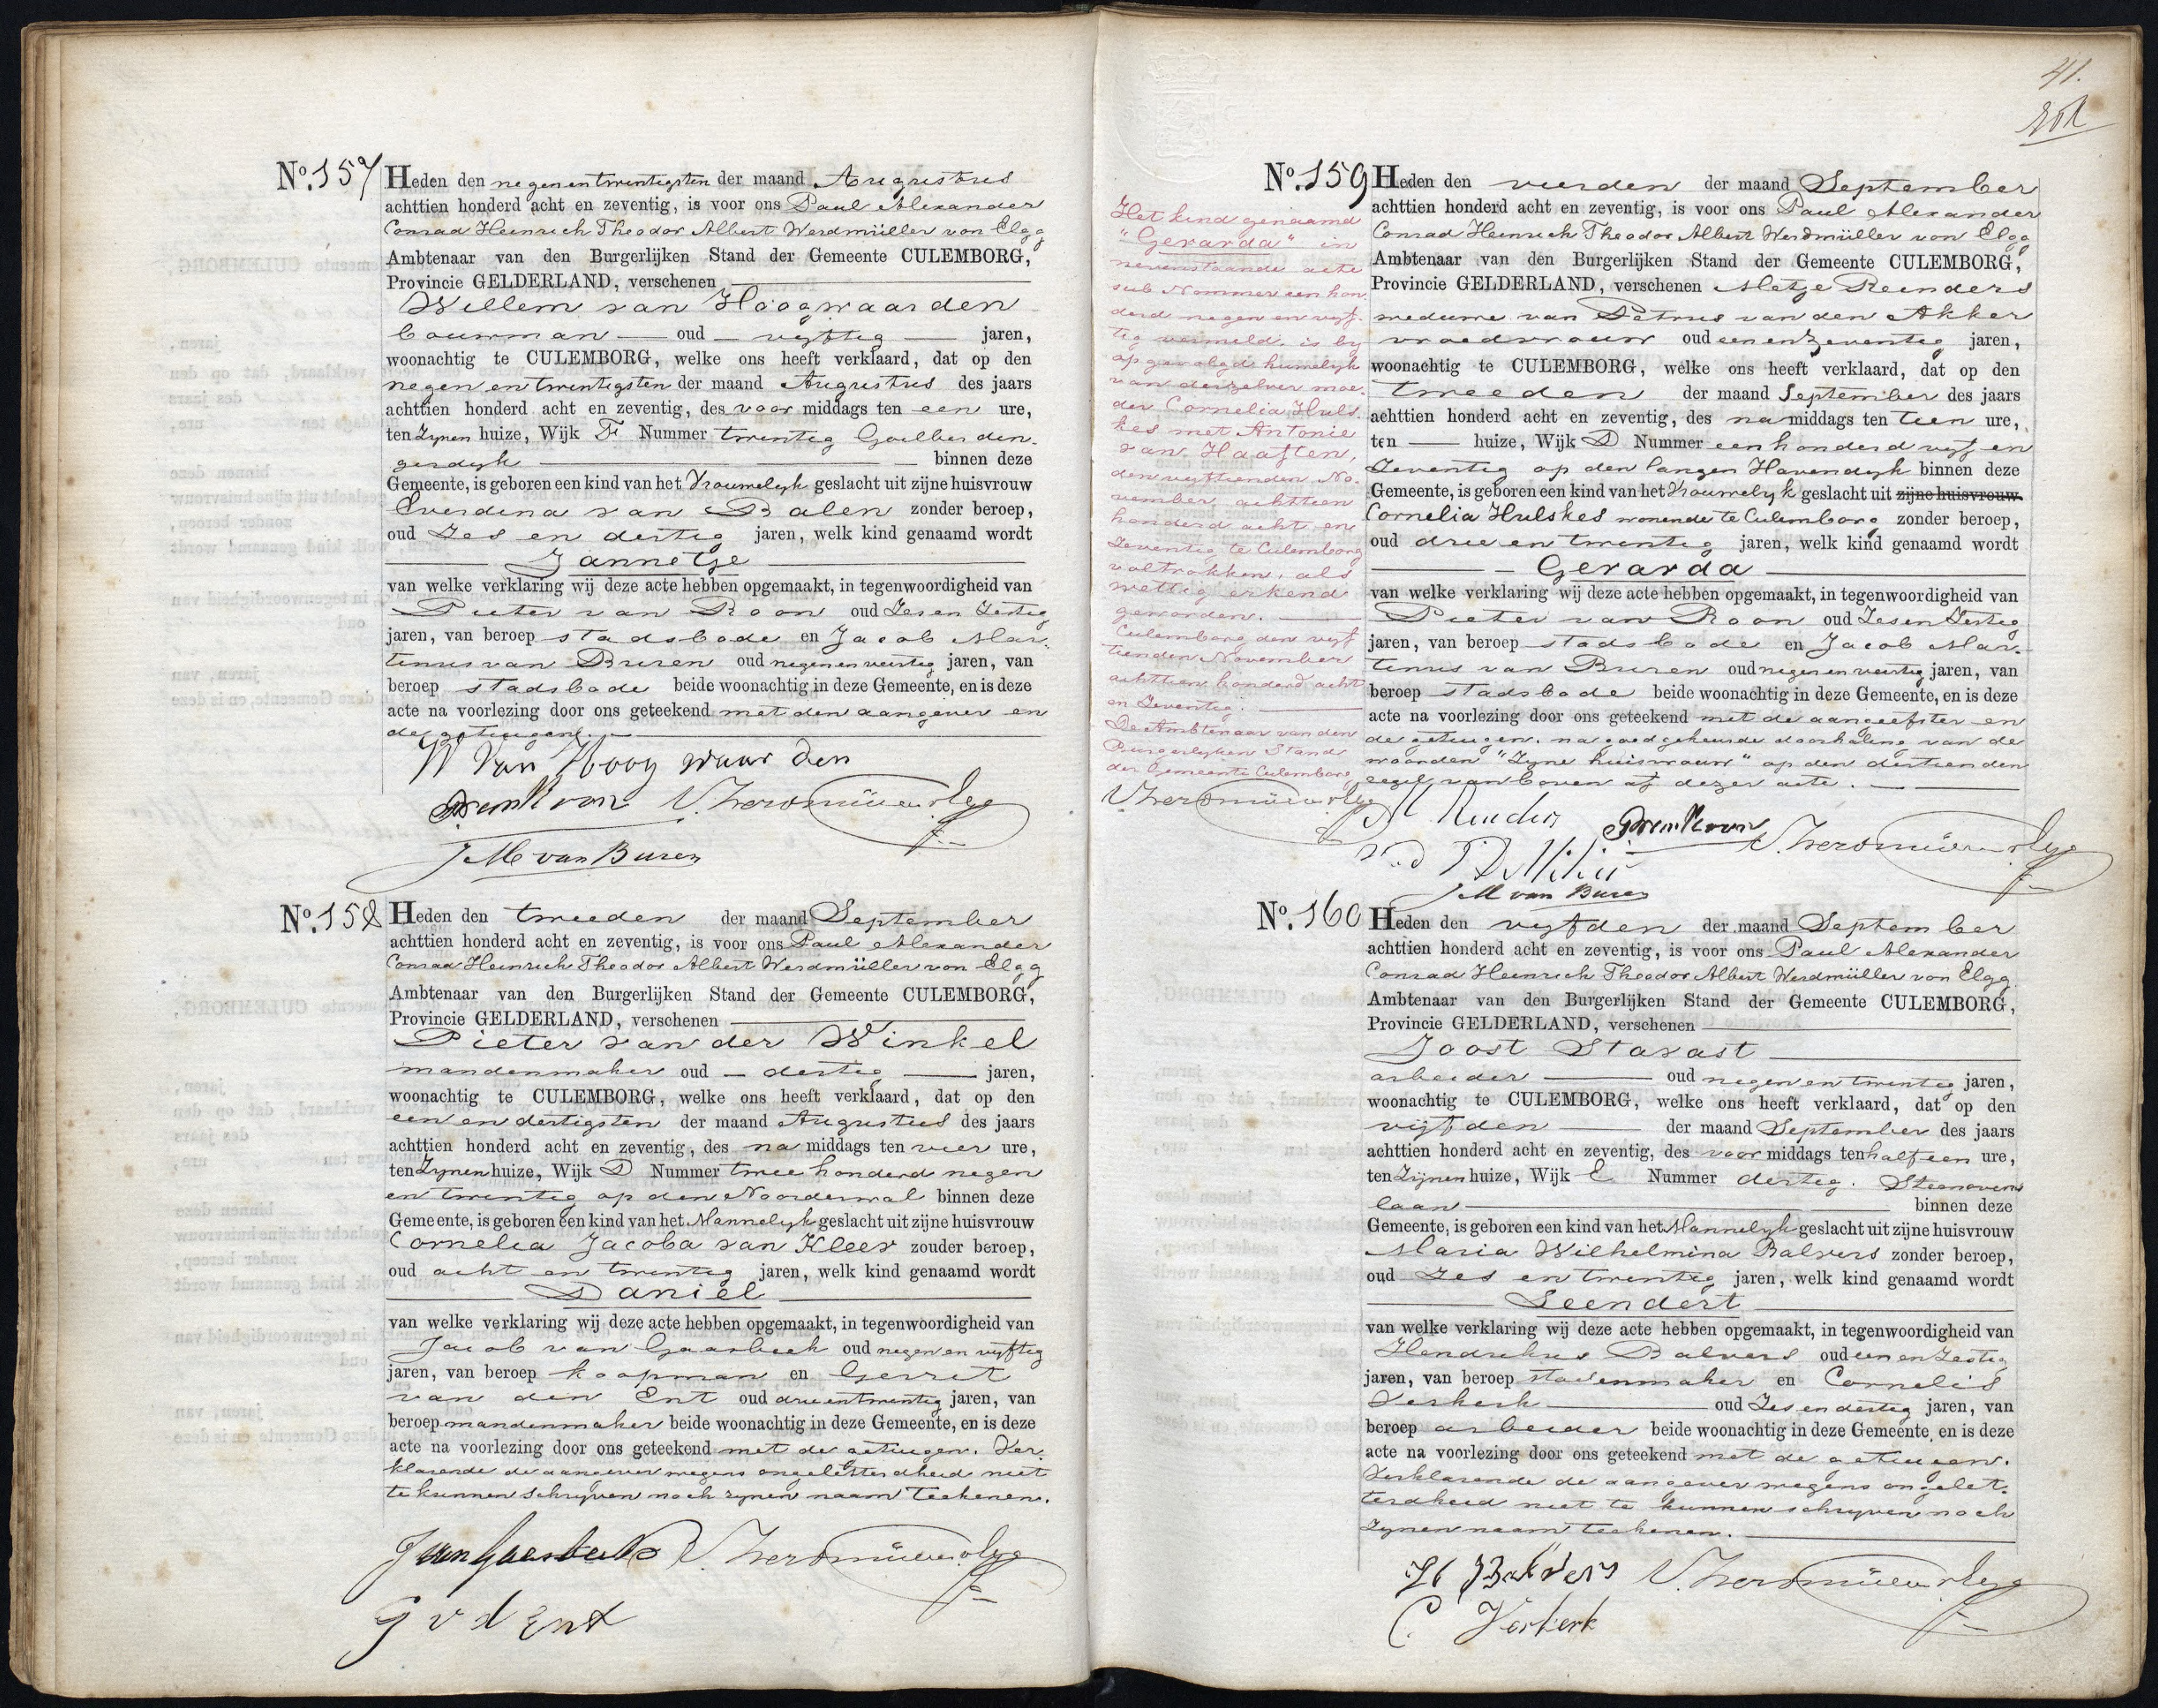 No. 157 Heden den negenentwintigsten der maand Augustus
achttien honderd acht en zeventig, is voor ons Paul Alexander
Conrad Heinrich Theodor Albert Werdmüller von Elgg
Ambtenaar van den Burgerlijken Stand der Gemeente CULEMBORG,
Provincie GELDERLAND, verschenen
Willem van Hoogwaarden
bouwman oud vyftig jaren,
woonachtig te CULEMBORG, welke ons heeft verklaard, dat op den
negen en twintigsten der maand Augustus des jaars
achttien honderd acht en zeventig, des voor middags ten een ure,
ten Zynen huize, Wijk F Nummer twintig Goilberden-
gerdyk binnen deze
Gemeente, is geboren een kind van het Vrouwelyk geslacht uit zijne huisvrouw
Everdina van Balen zonder beroep,
oud Zes en dertig jaren, welk kind genaamd wordt
Jannetje
van welke verklaring wij deze acte hebben opgemaakt, in tegenwoordigheid van
Pieter van Roon oud Zes en Zestig
jaren, van beroep stadsbode en Jacob Mar-
tinus van Buren oud negen en veertig jaren, van
beroep stadsbode beide woonachtig in deze Gemeente, en is deze
acte na voorlezing door ons geteekend met den aangever en
de getuigen.
W van Hoog waar den
P van Roon Werdmüller v Elgg
J M van Buren
No. 158 Heden den tweeden der maand September
achttien honderd acht en zeventig, is voor ons Paul Alexander
Conrad Heinrich Theodor Albert Werdmüller von Elgg
Ambtenaar van den Burgerlijken Stand der Gemeente CULEMBORG,
Provincie GELDERLAND, verschenen
Pieter van der Winkel
mandenmaker oud dertig jaren,
woonachtig te CULEMBORG, welke ons heeft verklaard, dat op den
een en dertigsten der maand Augustus des jaars
achttien honderd acht en zeventig, des na middags ten vier ure,
ten Zynen huize, Wijk D Nummer twee honderd negen
en twintig op den Noorderwal binnen deze
Gemeente, is geboren een kind van het Mannelyk geslacht uit zijne huisvrouw
Cornelia Jacoba van Kleef zonder beroep,
oud acht en twintig jaren, welk kind genaamd wordt
Daniel
van welke verklaring wij deze acte hebben opgemaakt, in tegenwoordigheid van
Jacob van Gaasbeek oud negen en vyftig
jaren, van beroep koopman en Gerrit
van den Ent oud drieentwintig jaren, van
beroep mandenmaker beide woonachtig in deze Gemeente, en is deze
acte na voorlezing door ons geteekend met de getuigen. Ver-
klarende de aangever wegens ongeletterdheid niet
te kunnen schryven noch zynen naam teekenen.
J van Gaasbeek Werdmüller v Elgg
G v d Ent
41.
No. 159 Heden den vierden der maand September
achttien honderd acht en zeventig, is voor ons Paul Alexander
Conrad Heinrich Theodor Albert Werdmüller von Elgg
Ambtenaar van den Burgerlijken Stand der Gemeente CULEMBORG,
Provincie GELDERLAND, verschenen Metje Reinders
weduwe van Petrus van den Akker
vroedvrouw oud eenenzeventig jaren,
woonachtig te CULEMBORG, welke ons heeft verklaard, dat op den
tweeden der maand September des jaars
achttien honderd acht en zeventig, des na middags ten tien ure,
ten huize, Wijk D Nummer een honderd vyf en
Zeventig op den langen Havendyk binnen deze
Gemeente, is geboren een kind van het Vrouwelyk geslacht uit zijne huisvrouw
Cornelia Hulskes wonende te Culemborg zonder beroep,
oud drie en twintig jaren, welk kind genaamd wordt
Gerarda
van welke verklaring wij deze acte hebben opgemaakt, in tegenwoordigheid van
Pieter van Roon oud Zes en Zestig
jaren, van beroep stadsbode en Jacob Mar-
tinus van Buren oud negen en veertig jaren, van
beroep stadsbode beide woonachtig in deze Gemeente, en is deze
acte na voorlezing door ons geteekend met de aangeefster en
de getuigen. na goedgekeurde doorhaling van de
woorden "Zyne huisvrouw" op den dertienden
regel van boven af dezer acte.
Het kind genaamd
"Gerarda" in
nevenstaande acte
sub Nommer een hon-
derd negen en vyf-
tig vermeld, is by
opgevolgd huwelyk
van deszelver moe-
der Cornelia Huls-
kes met Antonie
van Haaften,
den vyftienden No-
vember achttien
honderd acht en
Zeventig te Culemborg
voltrokken, als
wettig erkend
geworden.
Culemborg den vyf
tienden November
achttien honderd acht
en Zeventig.
De Ambtenaar van den
Burgerlyken Stand
der Gemeente Culemborg,
Werdmüller v Elgg
M Reinders P van Roon Werdmüller v Elgg
J M van Buren
No. 160 Heden den vyfden der maand September
achttien honderd acht en zeventig, is voor ons Paul Alexander
Conrad Heinrich Theodor Albert Werdmüller von Elgg
Ambtenaar van den Burgerlijken Stand der Gemeente CULEMBORG,
Provincie GELDERLAND, verschenen
Joost Stavast
arbeider oud negen en twintig jaren,
woonachtig te CULEMBORG, welke ons heeft verklaard, dat op den
vijfden der maand September des jaars
achttien honderd acht en zeventig, des voor middags ten half een ure,
ten Zijnen huize, Wijk E Nummer dertig. Steenovens
laan binnen deze
Gemeente, is geboren een kind van het Mannelyk geslacht uit zijne huisvrouw
Maria Wilhelmina Balvers zonder beroep,
oud Zes en twintig jaren, welk kind genaamd wordt
Leendert
van welke verklaring wij deze acte hebben opgemaakt, in tegenwoordigheid van
Hendrikus Balvers oud een en Zestig
jaren, van beroep stoelenmaker en Cornelis
Verkerk oud Zes en dertig jaren, van
beroep arbeider beide woonachtig in deze Gemeente, en is deze
acte na voorlezing door ons geteekend met de getuigen.
Verklarende de aangever wegens ongelet-
terdheid niet te kunnen schryven noch
Zynen naam teekenen.
H Balvers Werdmüller v Elgg
C. Verkerk